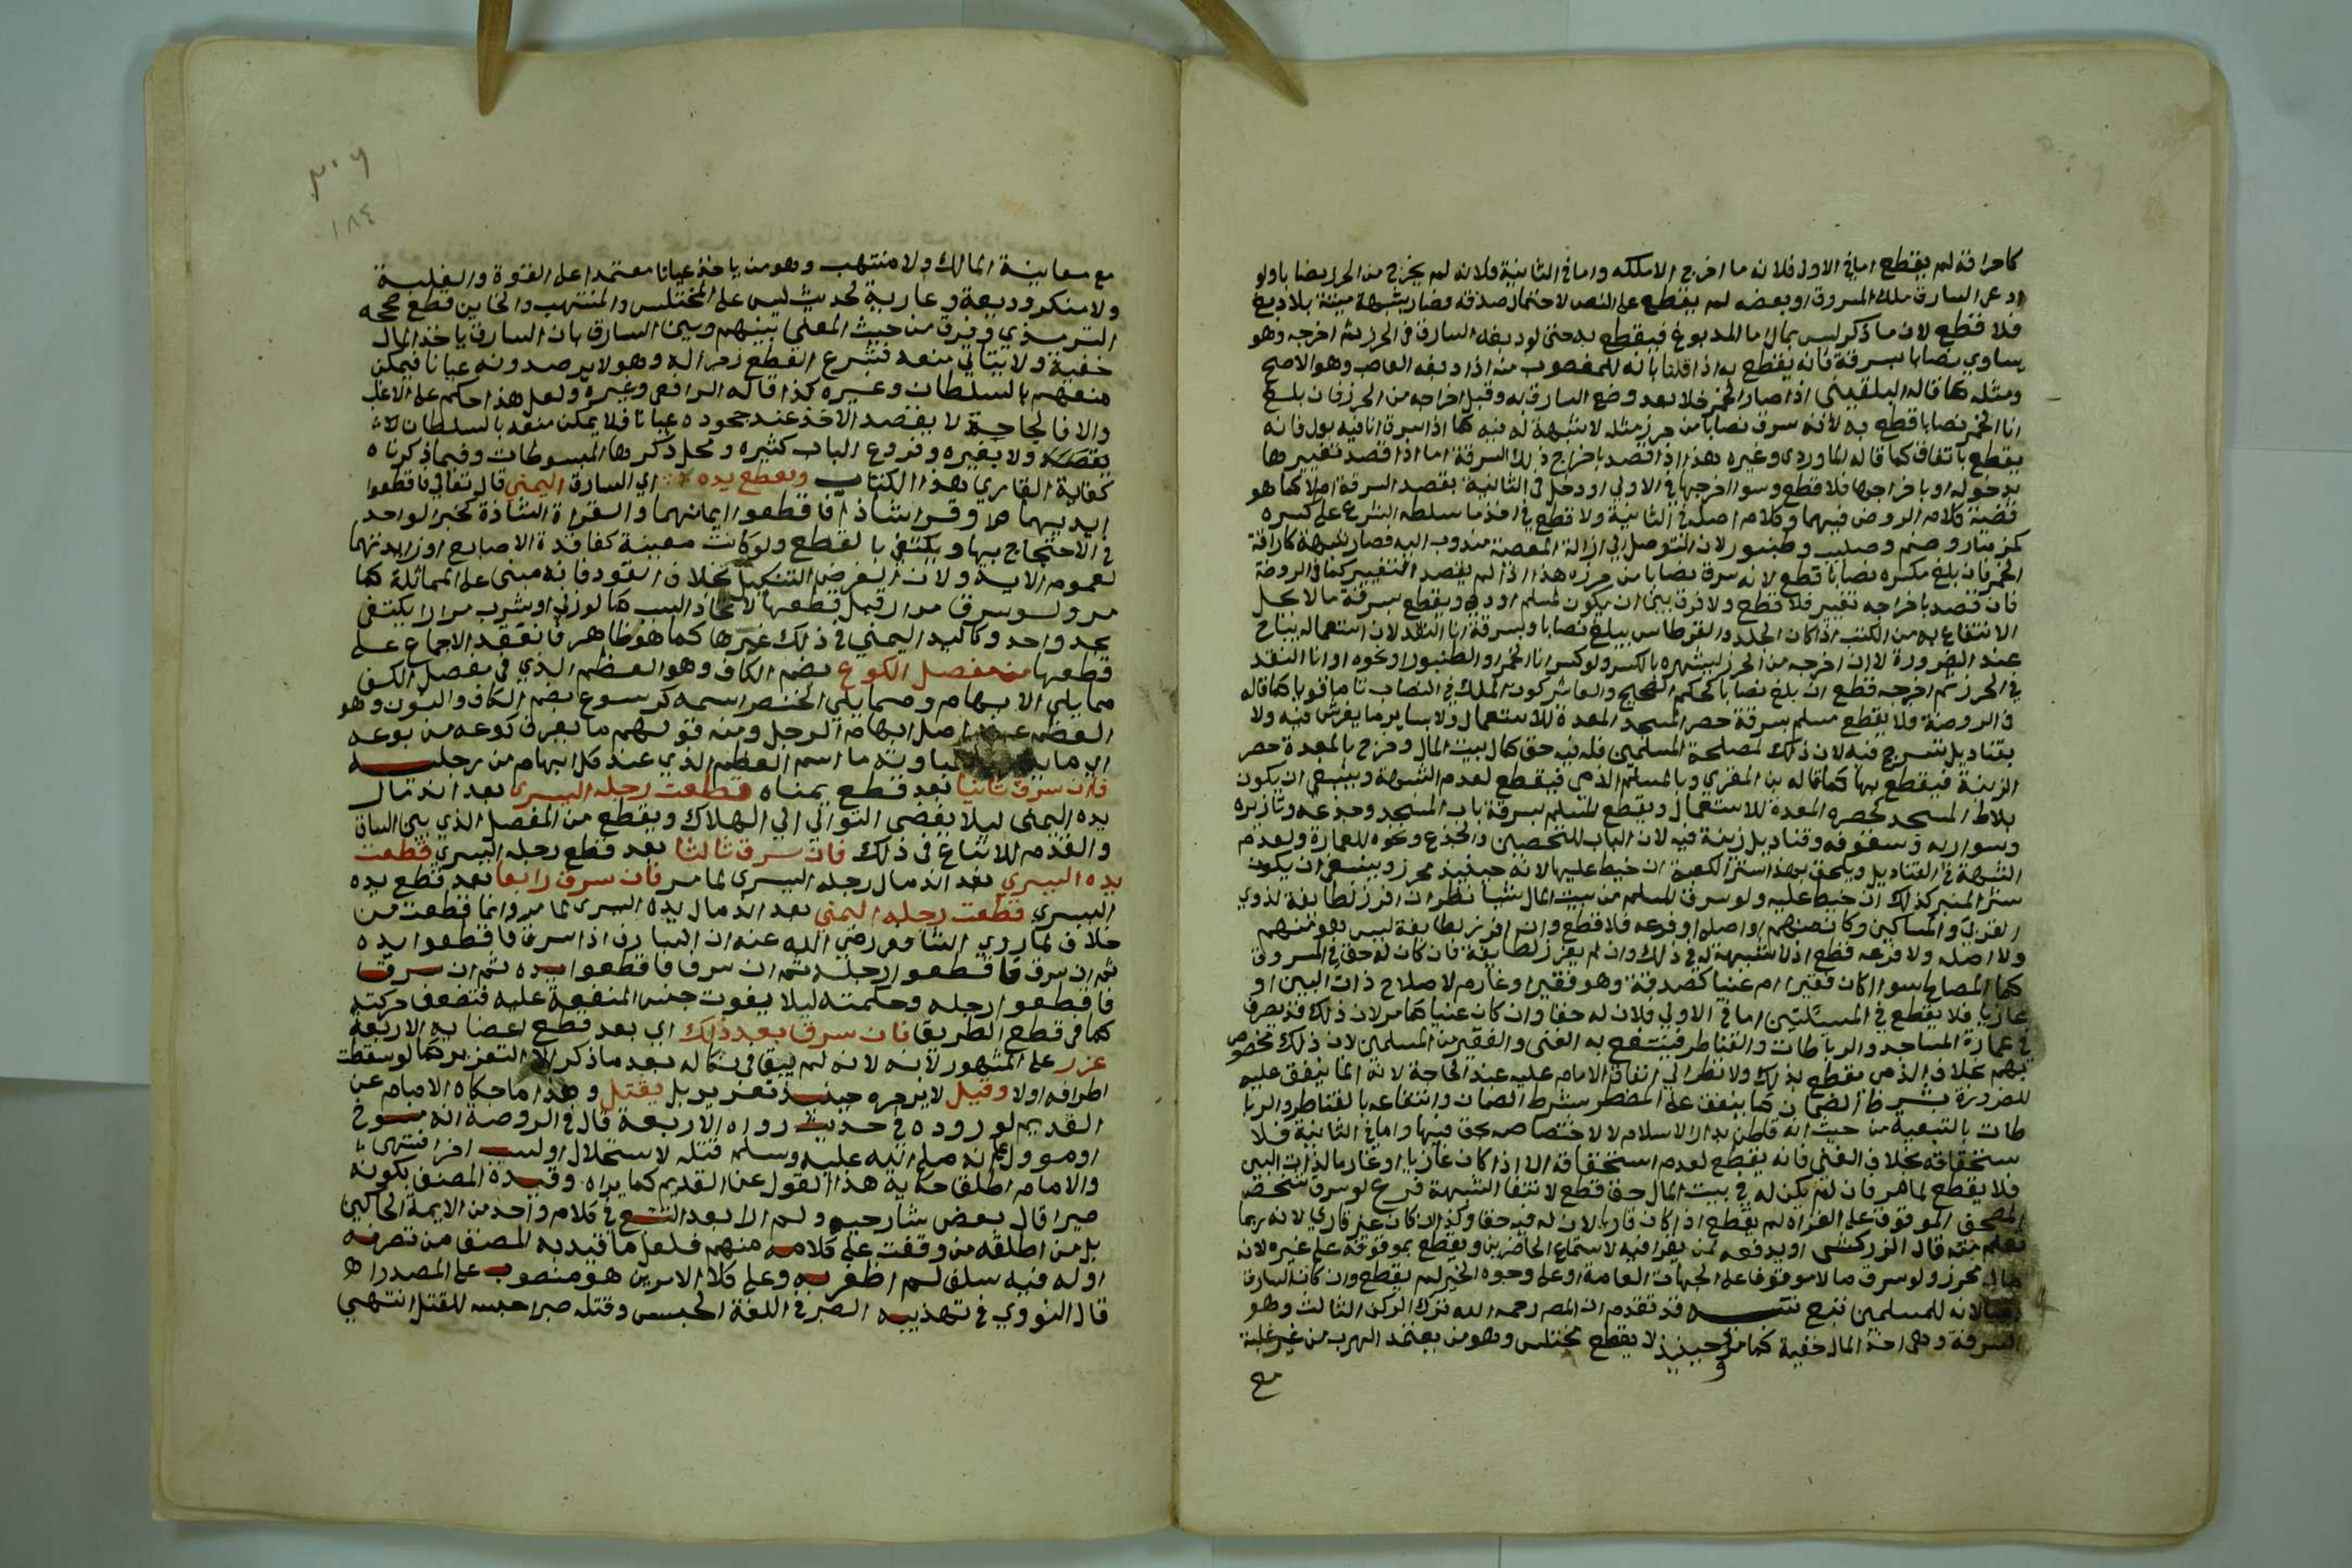 كاحراقه لم يقطع اما في الاولى فلانه ما اخرج الا ملكه واما في الثانية فلانه لم يخرج من الحرز نصابا ولو
ادعى السارق ملك المسروق او بعضه لم يقطع على النص لاحتمال صدقه فصار شبهة ميتة بلا دبغ
فلا قطع لان ما ذكر ليس بمال اما المدبوغ فيقطع به حتى لو دبغه السارق في الحرز ثم اخرجه وهو
يساوي نصابا سرقة فانه يقطع به اذا قلنا بانه للمغصوب منه اذا دبغه الغاصب وهو الاصح
ومثله كما قاله البلقيني اذا صار الخمر خلا بعد وضع السارق يده وقبل اخراجه من الحرز فان بلغ
انا الخمر نصابا قطع به لانه سرق نصابا من حرز مثله لا شبهة له فيه كما اذا سرق انا فيه بول فانه
يقطع باتفاق كما قاله الماوردي وغيره هذا اذا قصد باخراج ذلك السرقة اما اذا قصد تغييرها
بدخوله او باخراجها فلا قطع وسوا اخرجها في الاولى او دخل في الثانية بقصد السرقة ام لا كما هو
قضية كلام الروض فيهما وكلام اصله في الثانية ولا قطع في اخذ ما سلطه الشرع على كسره
كمزمار وصنم وصليب وطنبور لان التوصل الى ازالة المعصية مندوب اليه فصار شبهة كاراقة
الخمر فان بلغ مكسره نصابا قطع لانه سرق نصابا من حرزه هذا اذا لم يقصد التغيير كما في الروضة
فان قصد باخراجه تغيير فلا قطع ولا فرق بين ان يكون لمسلم او ذمي ويقطع بسرقة ما لا يحل
الانتفاع به من الكتب اذا كان الجلد والقرطاس يبلغ نصابا وبسرقة انا النقد لان استعماله يباح
عند الضرورة لا ان اخرجه من الحرز ليشهره بالكسر ولو كسر انا الخمر او الطنبور او نحوه او انا النقد
في الحرز ثم اخرجه قطع ان بلغ نصابا كحكم الصحيح والعاشر كون الملك في النصاب تاما قويا كما قاله
في الروضة ولا يقطع مسلم بسرقة حصر المسجد المعدة للاستعمال ولا بساير ما يفرش فيه ولا
بقناديل تسرج فيه لان ذلك لمصلحة المسلمين فله فيه حق كمال بيت المال وخرج بالمعدة حصر
الزينة فيقطع بها كما قاله بن المقري وبالمسلم الذمي فيقطع لعدم الشبهة وينبغي ان يكون
بلاط المسجد كحصره المعدة للاستعمال ويقطع المسلم بسرقة باب المسجد وجذعه وتازيره
وسواريه وسقوفه وقناديل زينة فيه لان الباب للتحصين والجذع ونحوه للعمارة ولعدم
الشبهة في القناديل ويلحق بهذا ستر الكعبة ان خيط عليها لانه حينيذ محرز وينبغي ان يكون
ستر المنبر كذلك ان خيط عليه ولو سرق المسلم من بيت المال شيا نظر ان افرز لطايفة لذوي
القربى والمساكين وكان منهم او اصله او فرعه فلا قطع وان افرز لطايفة ليس هو منهم
ولا اصله ولا فرعه قطع اذ لا شبهة له في ذلك وان لم يفرز لطايفة فان كان له حق في المسروق
كمال المصالح سوا كان فقيرا ام غنيا كصدقة وهو فقير او غارم لاصلاح ذات البين او
غاز فلا يقطع في المسئلتين اما في الاولى فلان له حقا وان كان غنيا كما مر لان ذلك قد يصرف
في عمارة المساجد والرباطات والقناطر فينتفع به الغني والفقير من المسلمين لان ذلك مخصوص
بهم بخلاف الذمي يقطع بذلك ولا نظر الى انفاق الامام عليه عند الحاجة لانه انما ينفق عليه
للضرورة بشرط الضمان كما ينفق على المضطر بشرط الضمان وانتفاعه بالقناطر والربا
طات بالتبعية من حيث انه قاطن بدار الاسلام لا لاختصاصه بحق فيها واما في الثانية فلا
ستحقاقه بخلاف الغني فانه يقطع لعدم استحقاقه الا اذا كان غازيا او غارما لذات البين
فلا يقطع لما مر فان لم يكن له في بيت المال حق قطع لانتفا الشبهة فرع لو سرق شخص
المصحف الموقوف على القراة لم يقطع اذا كان قاريا لان له فيه حقا وكذا ان كان غير قاري لانه ربما
تعلم منه قال الزركشي او يدفعه لمن يقرا فيه لاستماع الحاضرين ويقطع بموقوفة على غيره لانه
مال محرز ولو سرق مالا موقوفا على الجهات العامة او على وجوه الخير لم يقطع وان كان السارق
لانه للمسلمين تبع تنبيه قد تقدم ان المصر رحمه الله ترك الركن الثالث وهو
السرقة وهي اخذ المال خفية كما مر وحينيذ لا يقطع مختلس وهو من يعتمد الهرب من غير غلبة
مع
٣٠٦
١٨٤
مع معاينة المالك ولا منتهب وهو من ياخذ عيانا معتمدا على القوة والغلبة
ولا منكر وديعة وعارية لحديث ليس على المختلس والمنتهب والخاين قطع صححه
الترمذي وفرق من حيث المعنى بينهم وبين السارق بان السارق ياخذ المال
خفية ولا يتاتي منعه فشرع القطع زجرا له وهولا يرصدونه عيانا فيمكن
منعهم بالسلطان وغيره كذا قاله الرافعي وغيره ولعل هذا حكم على الاغلب
والا فالجاحد لا يقصد الاخذ عند جحوده عيانا فلا يمكن منعه بالسلطان
ولا بغيره وفروع الباب كثيره ومحل ذكرها المبسوطات وفيما ذكرناه
كفاية القاري لهذا الكتاب وتقطع يده اي السارق اليمنى قال تعالى فاقطعوا
ايديهما وقرا شاذا فاقطعوا ايمانهما والقراة الشاذة كخبر الواحد
في الاحتجاج بها ويكتفي بالقطع ولو كانت معيبة كفاقدة الاصابع او زايدتها
لعموم الاية ولان الغرض التنكيل بخلاف القود فانه مبني على المماثلة كما
مر ولو سرق مرارا قبل قطعها لاتحاد السبب كما لو زنى او شرب مرارا يكتفى
بحد واحد وكاليد اليمنى في ذلك غيرها كما هو ظاهر فانعقد الاجماع على
قطعها من مفصل الكوع بضم الكاف وهو العظم الذي في مفصل الكف
مما يلي الابهام ومما يلي الخنصر اسمه كرسوع بضم الكاف والبوع وهو
العظم عند اصل ابهام الرجل ومنه قولهم ما يعرف كوعه من بوعه
اي ما يدري لغباوته ما اسم العظم الذي عند كل ابهام من رجليه
فان سرق ثانيا بعد قطع يمناه قطعت رجله اليسرى بعد اندمال
يده اليمنى ليلا يفضي التوالي الى الهلاك ويقطع من المفصل الذي بين الساق
والقدم للاتباع في ذلك فان سرق ثالثا بعد قطع رجله اليسرى قطعت
يده اليسرى بعد اندمال رجله اليسرى لما مر فان سرق رابعا بعد قطع يده
اليسرى قطعت رجله اليمنى بعد اندمال يده اليسرى لما مر وانما قطعت من
خلاف لما روي الشافعي رضي الله عنه ان السارق اذا سرق فاقطعوا يده
ثم ان سرق فاقطعوا رجله ثم ان سرق فاقطعوا يده ثم ان سرق
فاقطعوا رجله وحكمته ليلا يفوت جنس المنفعة عليه فتضعف حركته
كما في قطع الطريق فان سرق بعد ذلك اي بعد قطع اعضايه الاربعة
عزر على المشهور لانه لم يبق في نكاله بعد ما ذكر الا التعزير كما لو سقطت
اطرافه اولا وقيل لا يزجره حينيذ تعزير بل يقتل وهذا ما حكاه الامام عن
القديم لوروده في حديث رواه الاربعة قال في الروضة انه منسوخ
او مووول على انه صلى الله عليه وسلم قتله لاستحلال او لسبب اخر انتهى
والامام اطلق حكاية هذا القول عن القديم كما يراه وقيده المصنف بكونه
صبرا قال بعض شارحيه ولم اره بعد التتبع في كلام واحد من الايمة الحاكين
بل من اطلقه من وقفت على كلامه منهم فلعل ما قيد به المصنف من تصرفه
اوله فيه سلف لم اظفر به وعلى كلا الامرين هو منصوب على المصدر اهـ
قال النووي في تهذيبه الصبر في اللغة الحبس وقتله صبرا حبسه للقتل انتهى